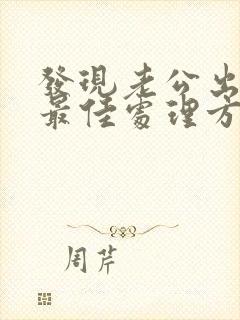 發現老公出
最佳處理方
周芹